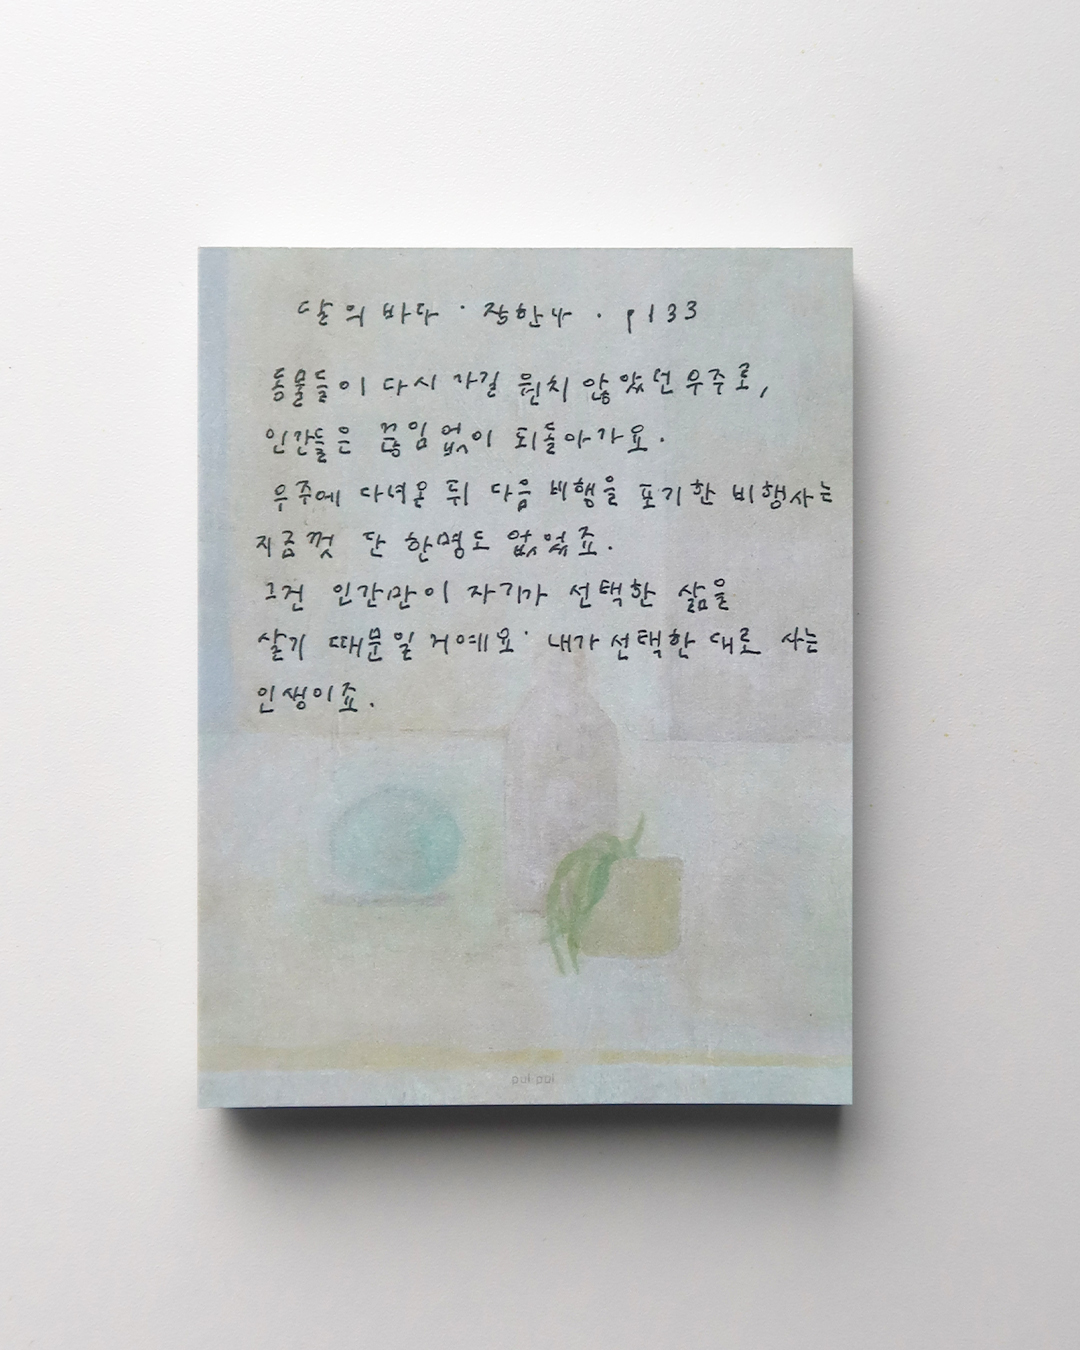 달의 바다 · 정한나 · p133
동물들이 다시 가길 원치 않았던 우주로,
인간들은 끊임없이 되돌아가요.
우주에 다녀온 뒤 다음 비행을 포기한 비행사는
지금껏 단 한명도 없었죠.
그건 인간만이 자기가 선택한 삶을
살기 때문일 거예요. 내가 선택한 대로 사는
인생이죠.
pul pul